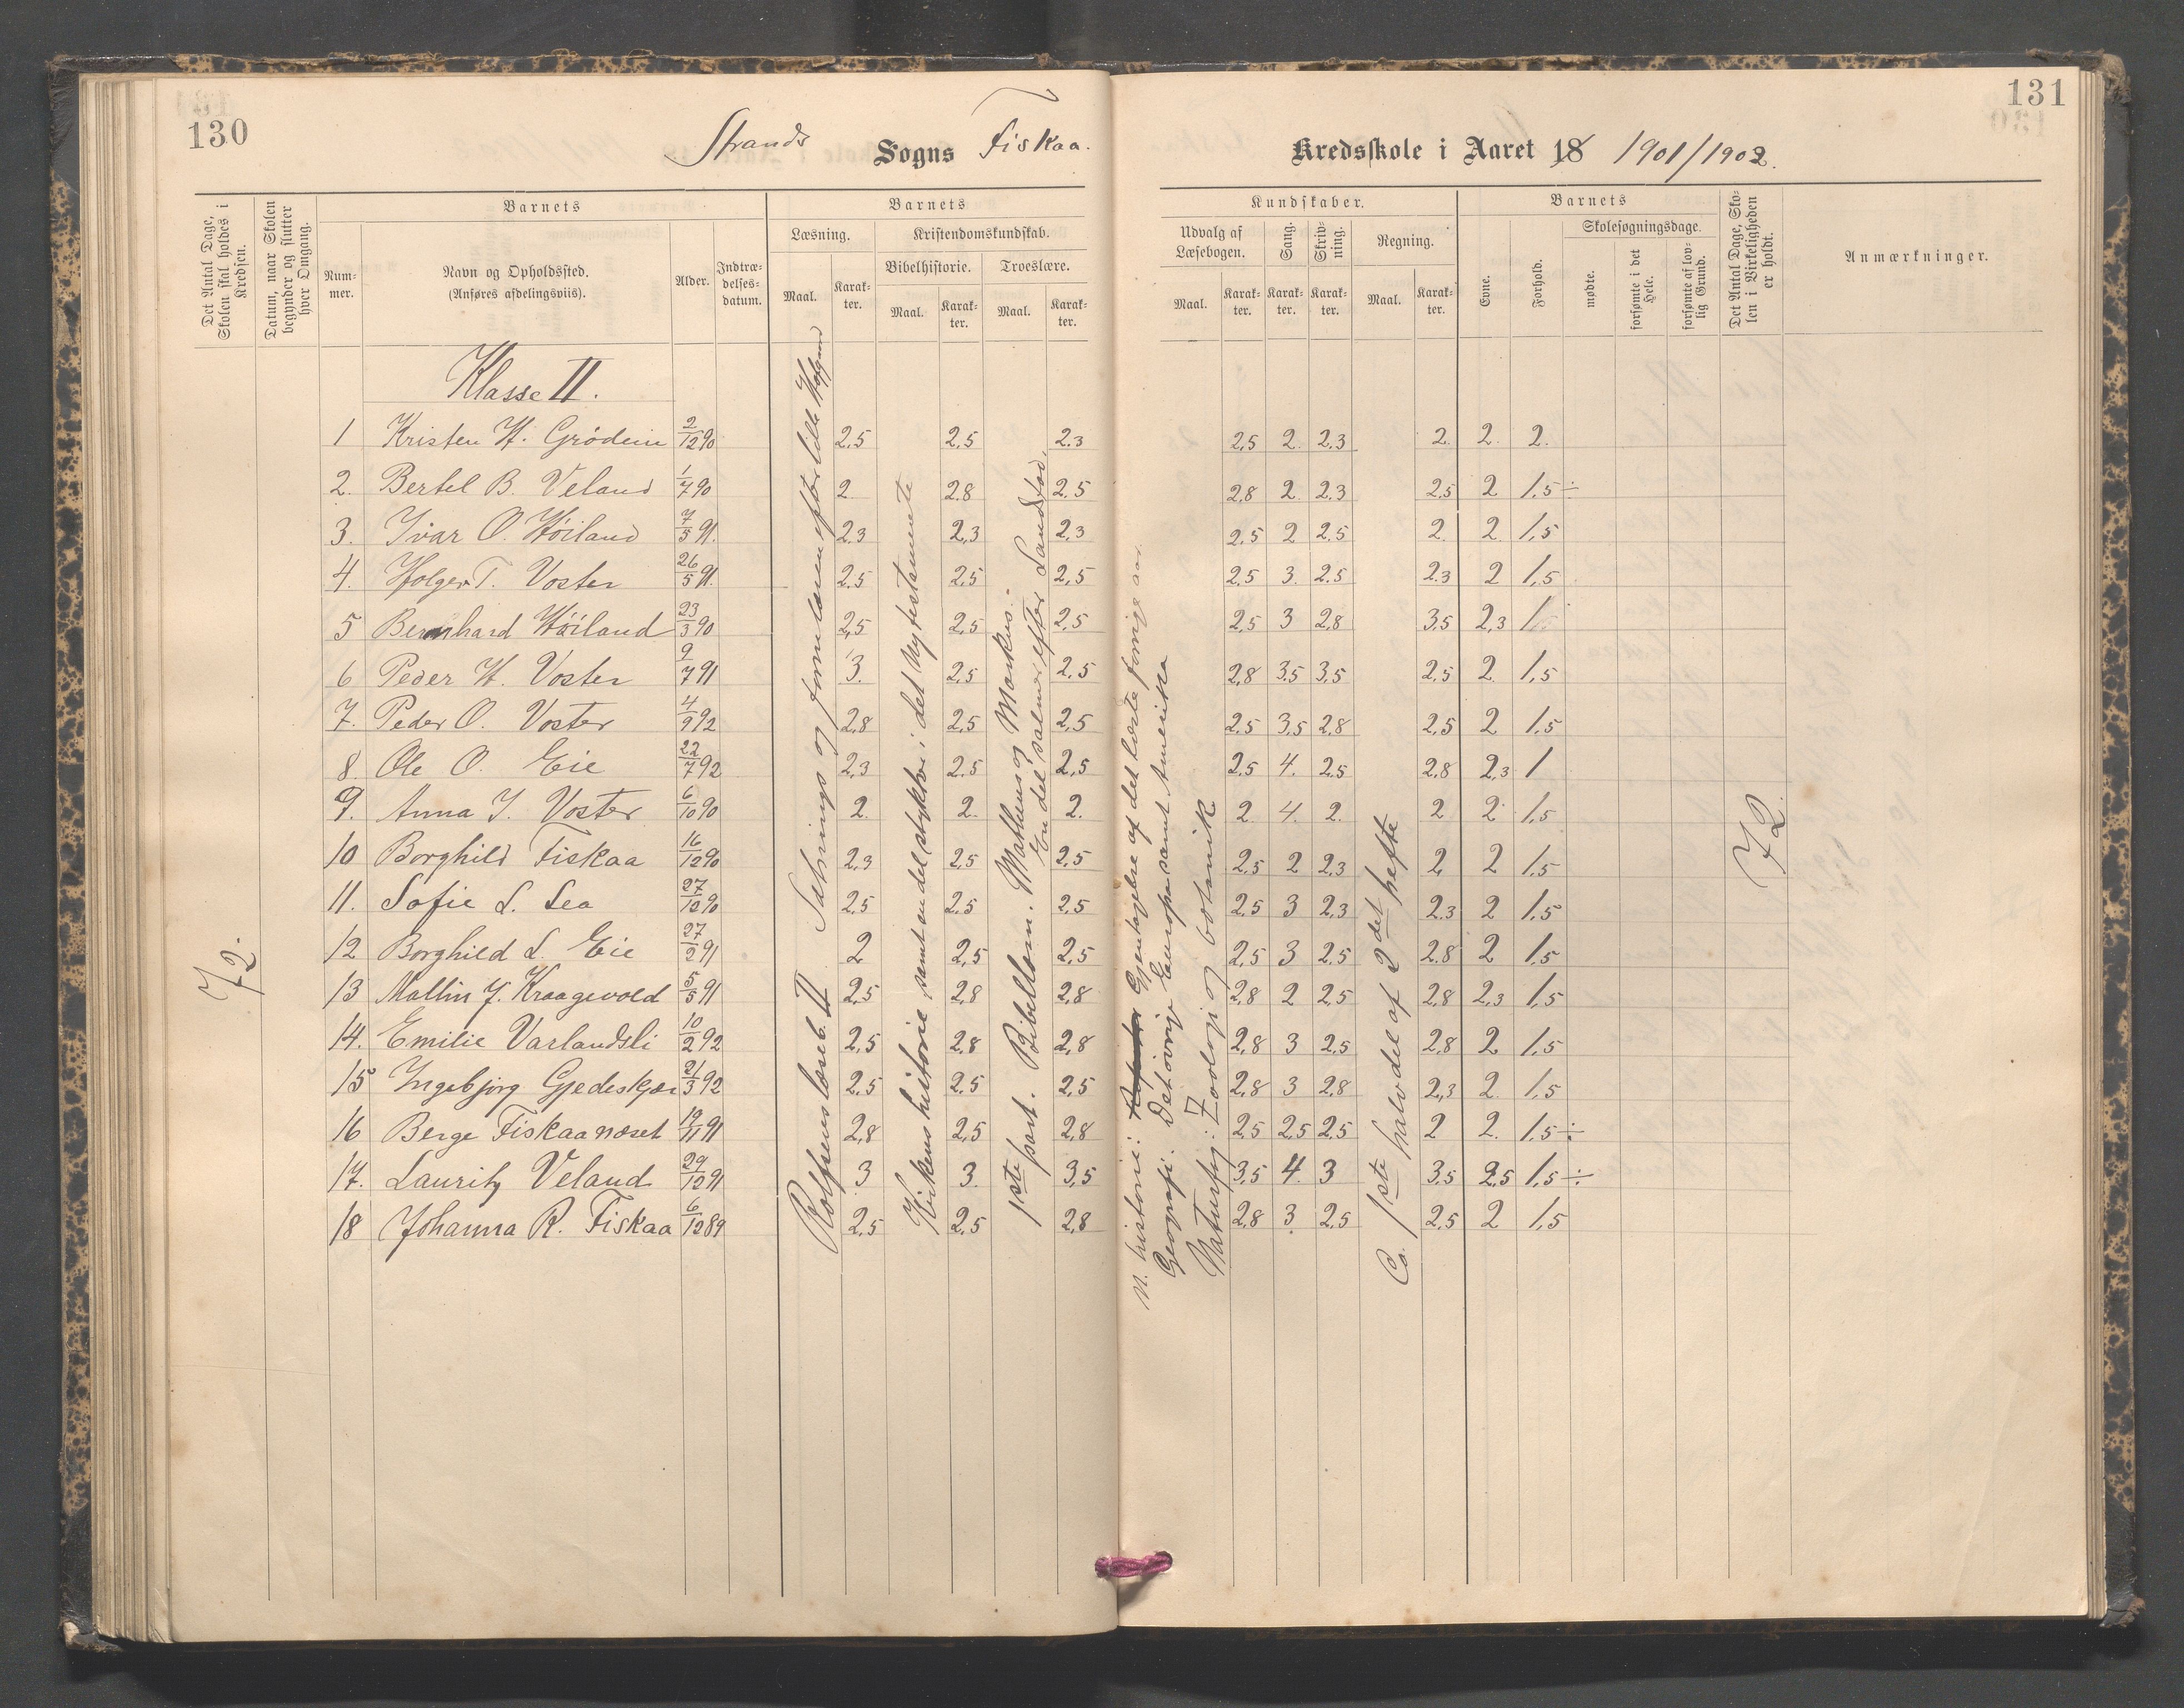 130
131
Strands Sogns Fiskaa.
Kredsskole i Aaret 18 1901/1902.
Det Antal Dage, Skolen skal holdes i Kredsen.
Datum, naar Skolen begynder og slutter hver Omgang.
Barnets
Num-mer.
Navn og Opholdssted. (Anføres afdelingsviis).
Alder.
Indtræ-delses-datum.
Barnets
Læsning.
Kristendomskundskab.
Bibelhistorie.
Troeslære.
Maal.
Karak-ter.
Maal.
Karak-ter.
Maal.
Karak-ter.
Kundskaber.
Udvalg af Læsebogen.
Gang.
Skriv-ning.
Regning.
Maal.
Karak-ter.
Karak-ter.
Karak-ter.
Maal.
Karak-ter.
Barnets
Evne.
Forhold.
Skolesøgningsdage.
mødte.
forsømte i det Hele.
forsømte af lov-lig Grund.
Det Antal Dage, Sko-len i Virkeligheden er holdt.
Anmærkninger.
Klasse II.
1 Kristen H. Grödem 2/12 90 2.5 2.5 2.3 2,5 2. 2,3 2. 2. 2.
2. Bertel B. Veland 1/7 90 2 2.8 2.5 2,8 2. 2,3 2,5 2 1,5 ÷
3. Ivar O. Höiland 7/5 91. 2.3 2,3 2,3 2,5 2 2.5 2. 2. 1,5
4. Holger T. Voster 26/5 91. 2.5 2,5 2,5 2,5 3. 2.5 2.3 2 1,5
5 Bernhard Höiland 23/3 90 2,5 2,5 2,5 2.5 3 2,8 3.5 2,3 1
6 Peder H. Voster 9/7 91 3. 2,5 2,5 2,8 3,5 3,5 2,5 2. 1,5
7. Peder O. Voster 4/9 92 2,8 2,5 2,5 2,5 3,5 2,8 2,5 2 1,5
8. Ole O. Eie 22/7 92 2,3 2.5 2,5 2,5 4. 2,5 2,8 2,3 1
9. Anna I. Voster 6/10 90 2. 2. 2. 2 4. 2. 2 2 1,5
10 Borghild Fiskaa 16/12 90 2,3 2,5 2,5 2,5 2 2,3 2, 2 1,5
11. Sofie L. Lea 27/12 90 2,5 2,5 2,5 2,5 3 2,3 2,3 2 1,5
12 Borghild L. Eie 27/2 91 2 2,5 2,5 2,5 3 2.5 2.8 2 1,5
13 Mallin J. Kraagevold 5/5 91 2,5 2,8 2,8 2,8 2 2,5 2,8 2,3 1,5
14. Emilie Varlandsli 10/2 92 2,5 2,8 2,8 2,8 3 2,5 2,8 2 1,5
15 Ingebjorg Gjedeskjær 21/3 92 2,5 2.5 2,5 2,8 3 2,8 2,3 2. 1,5
16 Berge Fiskaanæset 19/11 91 2,8 2,5 2,8 2,5 2,5 2,5 2 2. 1,5 ÷
17. Lauritz Veland 29/12 91 3 3. 3,5 3,5 4. 3 3.5 2,5 1,5 ÷
18 Johanna R. Fiskaa 6/12 89 2,5 2,5 2,8 2,8 3. 2,5 2,5 2 1,5
72.
Rolfsens læseb. II
Kirkens historie samt en del stykker i det Ny testamente
1ste part. Bibellæsn. Matheus og Markus.
En del salmer efter Landstad.
N. historie: Gjentagelse af det læste forrige aar.
Geografi: Det øvrige Europa samt Amerika
Naturfag: Zoologi og botanik
Ca. 1ste halvdel af 2det hefte
72.